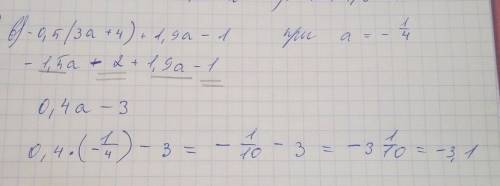 б) -0,5(3a+4)+1,9a-1 при a = -1/4
-1,5a - 2 + 1,9a - 1
0,4a - 3
0,4 · (1/-4) - 3 = - 1/10 - 3 = -3 1/10 = -3,1